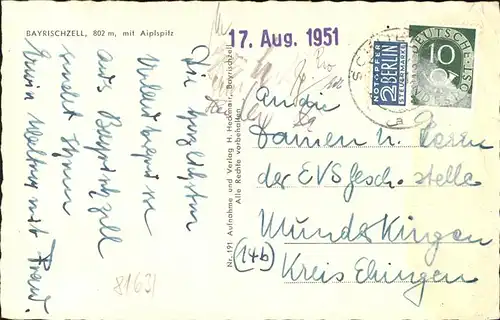 BAYRISCHZELL, 802 m, mit Aiplspitz
Die herzlichsten
Urlaubsgrüsse
aus Bayrischzell
sendet Ihnen
Erwin mit Frau.
81631
Nr. 191 Aufnahme und Verlag H. Heckmair, Bayrischzell
Alle Rechte vorbehalten
17. Aug. 1951
NOTOPFER
2 BERLIN
STEUERMARKE
DEUTSCHE POST
10
An die
Damen u. Herren
der EVS Gesch. stelle
Munderkingen
(14b)
Kreis Ehingen